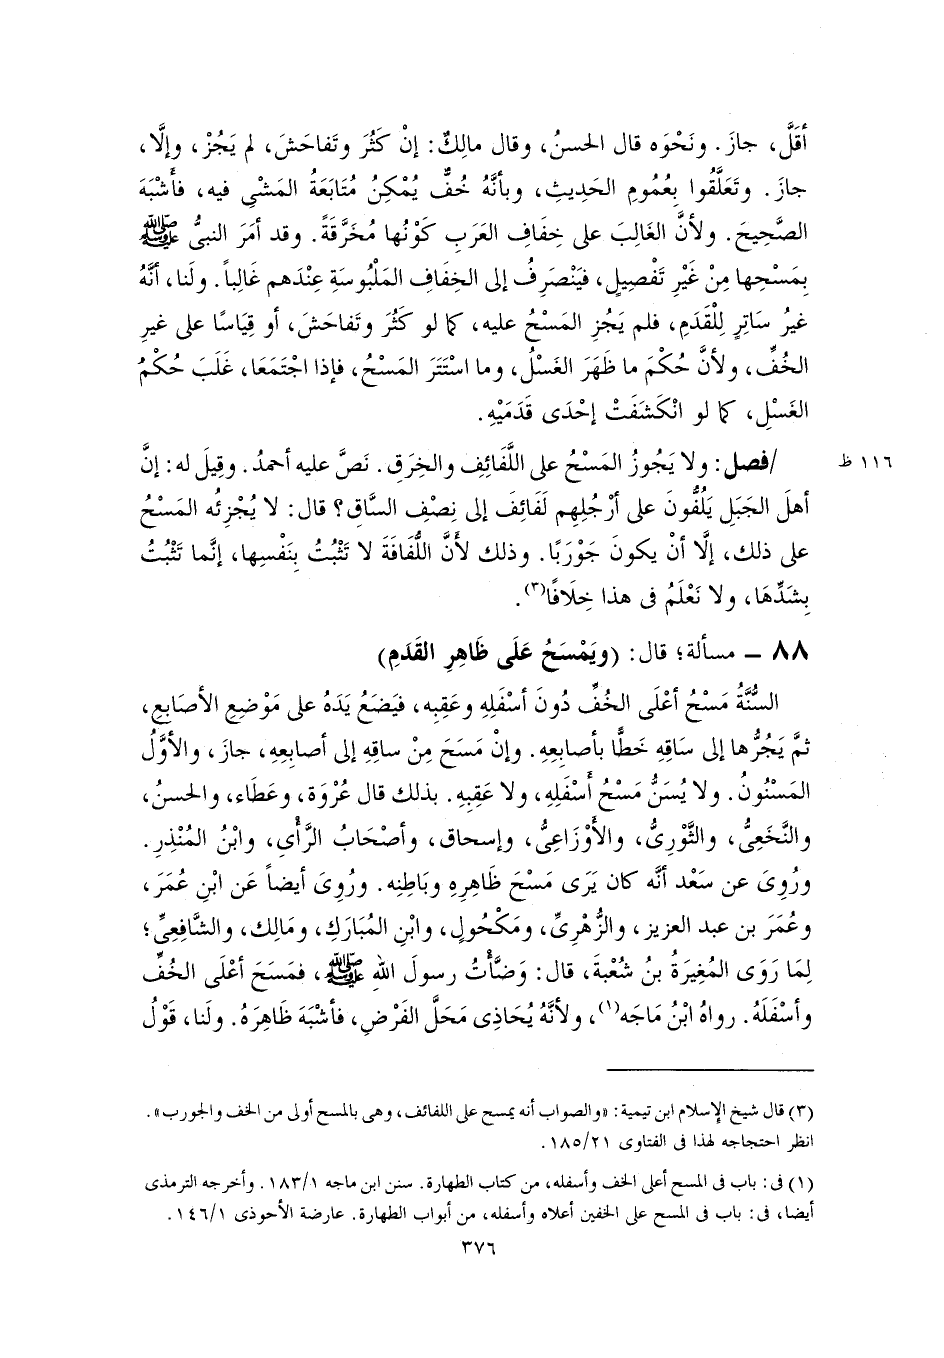 أقَلَّ، جازَ. ونَحْوَه قال الحسنُ، وقال مالِكٌ: إنْ كَثُرَ وتَفاحَشَ، لم يَجُزْ، وإلَّا،
جازَ. وتَعَلَّقُوا بعُمومِ الحَدِيثِ، وبأنَّهُ خُفٌّ يُمْكِنُ مُتَابَعَةُ المَشْىِ فيه، فأشْبَهَ
الصَّحِيحَ. ولأنَّ الغالِبَ على خِفافِ العَرَبِ كَوْنُها مُخَرَّقةً. وقد أمَرَ النبىُّ ﷺ
بِمَسْحِها مِنْ غَيْرِ تَفْصِيلٍ، فيَنْصَرِفُ إلى الخِفَافِ المَلْبُوسَةِ عِنْدَهم غَالِباً. ولَنا، أنَّهُ
غيرُ سَاتِرٍ لِلْقَدَمِ، فلم يَجُزِ المَسْحُ عليه، كما لو كَثُرَ وتَفاحَشَ، أو قِيَاسًا على غيرِ
الخُفِّ، ولأنَّ حُكْمَ ما ظَهَرَ الغَسْلُ، وما اسْتَتَرَ المَسْحُ، فإذا اجْتَمَعَا، غَلَبَ حُكْمُ
الغَسْلِ، كما لو انْكَشَفَتْ إحْدَى قَدَمَيْهِ.
/فصل: ولا يَجُوزُ المَسْحُ على اللَّفَائِفِ والخِرَقِ. نَصَّ عليه أحمدُ. وقِيلَ له: إنَّ ١١٦ ظ
أهلَ الجَبَلِ يَلُفُّونَ على أرْجُلِهم لَفَائِفَ إلى نِصْفِ السَّاقِ؟ قال: لا يُجْزِئُه المَسْحُ
على ذلك، إلَّا أنْ يكونَ جَوْرَبًا. وذلك لأنَّ اللُّفَافَةَ لا تَثْبُتُ بِنَفْسِها، إنَّما تَثْبُتُ
بِشَدِّهَا، ولا نَعْلَمُ فى هذا خِلَافًا(٣).
٨٨ - مسألة؛ قال: (ويَمْسَحُ عَلَى ظَاهِرِ القَدَمِ)
السُّنَّةُ مَسْحُ أعْلَى الخُفِّ دُونَ أسْفَلِهِ وعَقِبِه، فيَضَعُ يَدَهُ على مَوْضِعِ الأصَابِعِ،
ثمَّ يَجُرُّها إلى سَاقِهِ خَطًّا بأصابِعِهِ. وإنْ مَسَحَ مِنْ ساقِهِ إلى أصابِعِه، جازَ، والأوَّلُ
المَسْنُونُ. ولا يُسَنُّ مَسْحُ أسْفَلِهِ، ولا عَقِبِهِ. بذلك قال عُرْوَة، وعَطَاء، والحسنُ،
والنَّخَعِىُّ، والثَّوْرِىُّ، والأَوْزَاعِىُّ، وإسحاق، وأصْحَابُ الرَّأْىِ، وابْنُ المُنْذِرِ.
ورُوِىَ عن سَعْد أنَّه كان يَرَى مَسْحَ ظاهِرِهِ وبَاطِنِه. ورُوِىَ أيضاً عَن ابْنِ عُمَرَ،
وعُمَرَ بن عبد العزيز، والزُّهْرِىِّ، ومَكْحُولٍ، وابْنِ المُبَارَكِ، ومَالِك، والشَّافِعِىِّ؛
لِمَا رَوَى المُغِيرَةُ بنُ شُعْبةَ، قال: وَضَّأْتُ رسولَ اللهِ ﷺ، فمَسَحَ أعْلَى الخُفِّ
وأسْفَلَهُ. رواهُ ابْنُ مَاجَه(١)، ولأنَّهُ يُحَاذِى مَحَلَّ الفَرْضِ، فأشْبَهَ ظَاهِرَهُ. ولَنا، قَوْلُ
(٣) قال شيخ الإسلام ابن تيمية: «والصواب أنه يمسح على اللفائف، وهى بالمسح أولى من الخف والجورب».
انظر احتجاجه لهذا فى الفتاوى ١٨٥/٢١.
(١) فى: باب فى المسح أعلى الخف وأسفله، من كتاب الطهارة. سنن ابن ماجه ١٨٣/١. وأخرجه الترمذى
أيضا، فى: باب فى المسح على الخفين أعلاه وأسفله، من أبواب الطهارة. عارضة الأحوذى ١٤٦/١.
٣٧٦